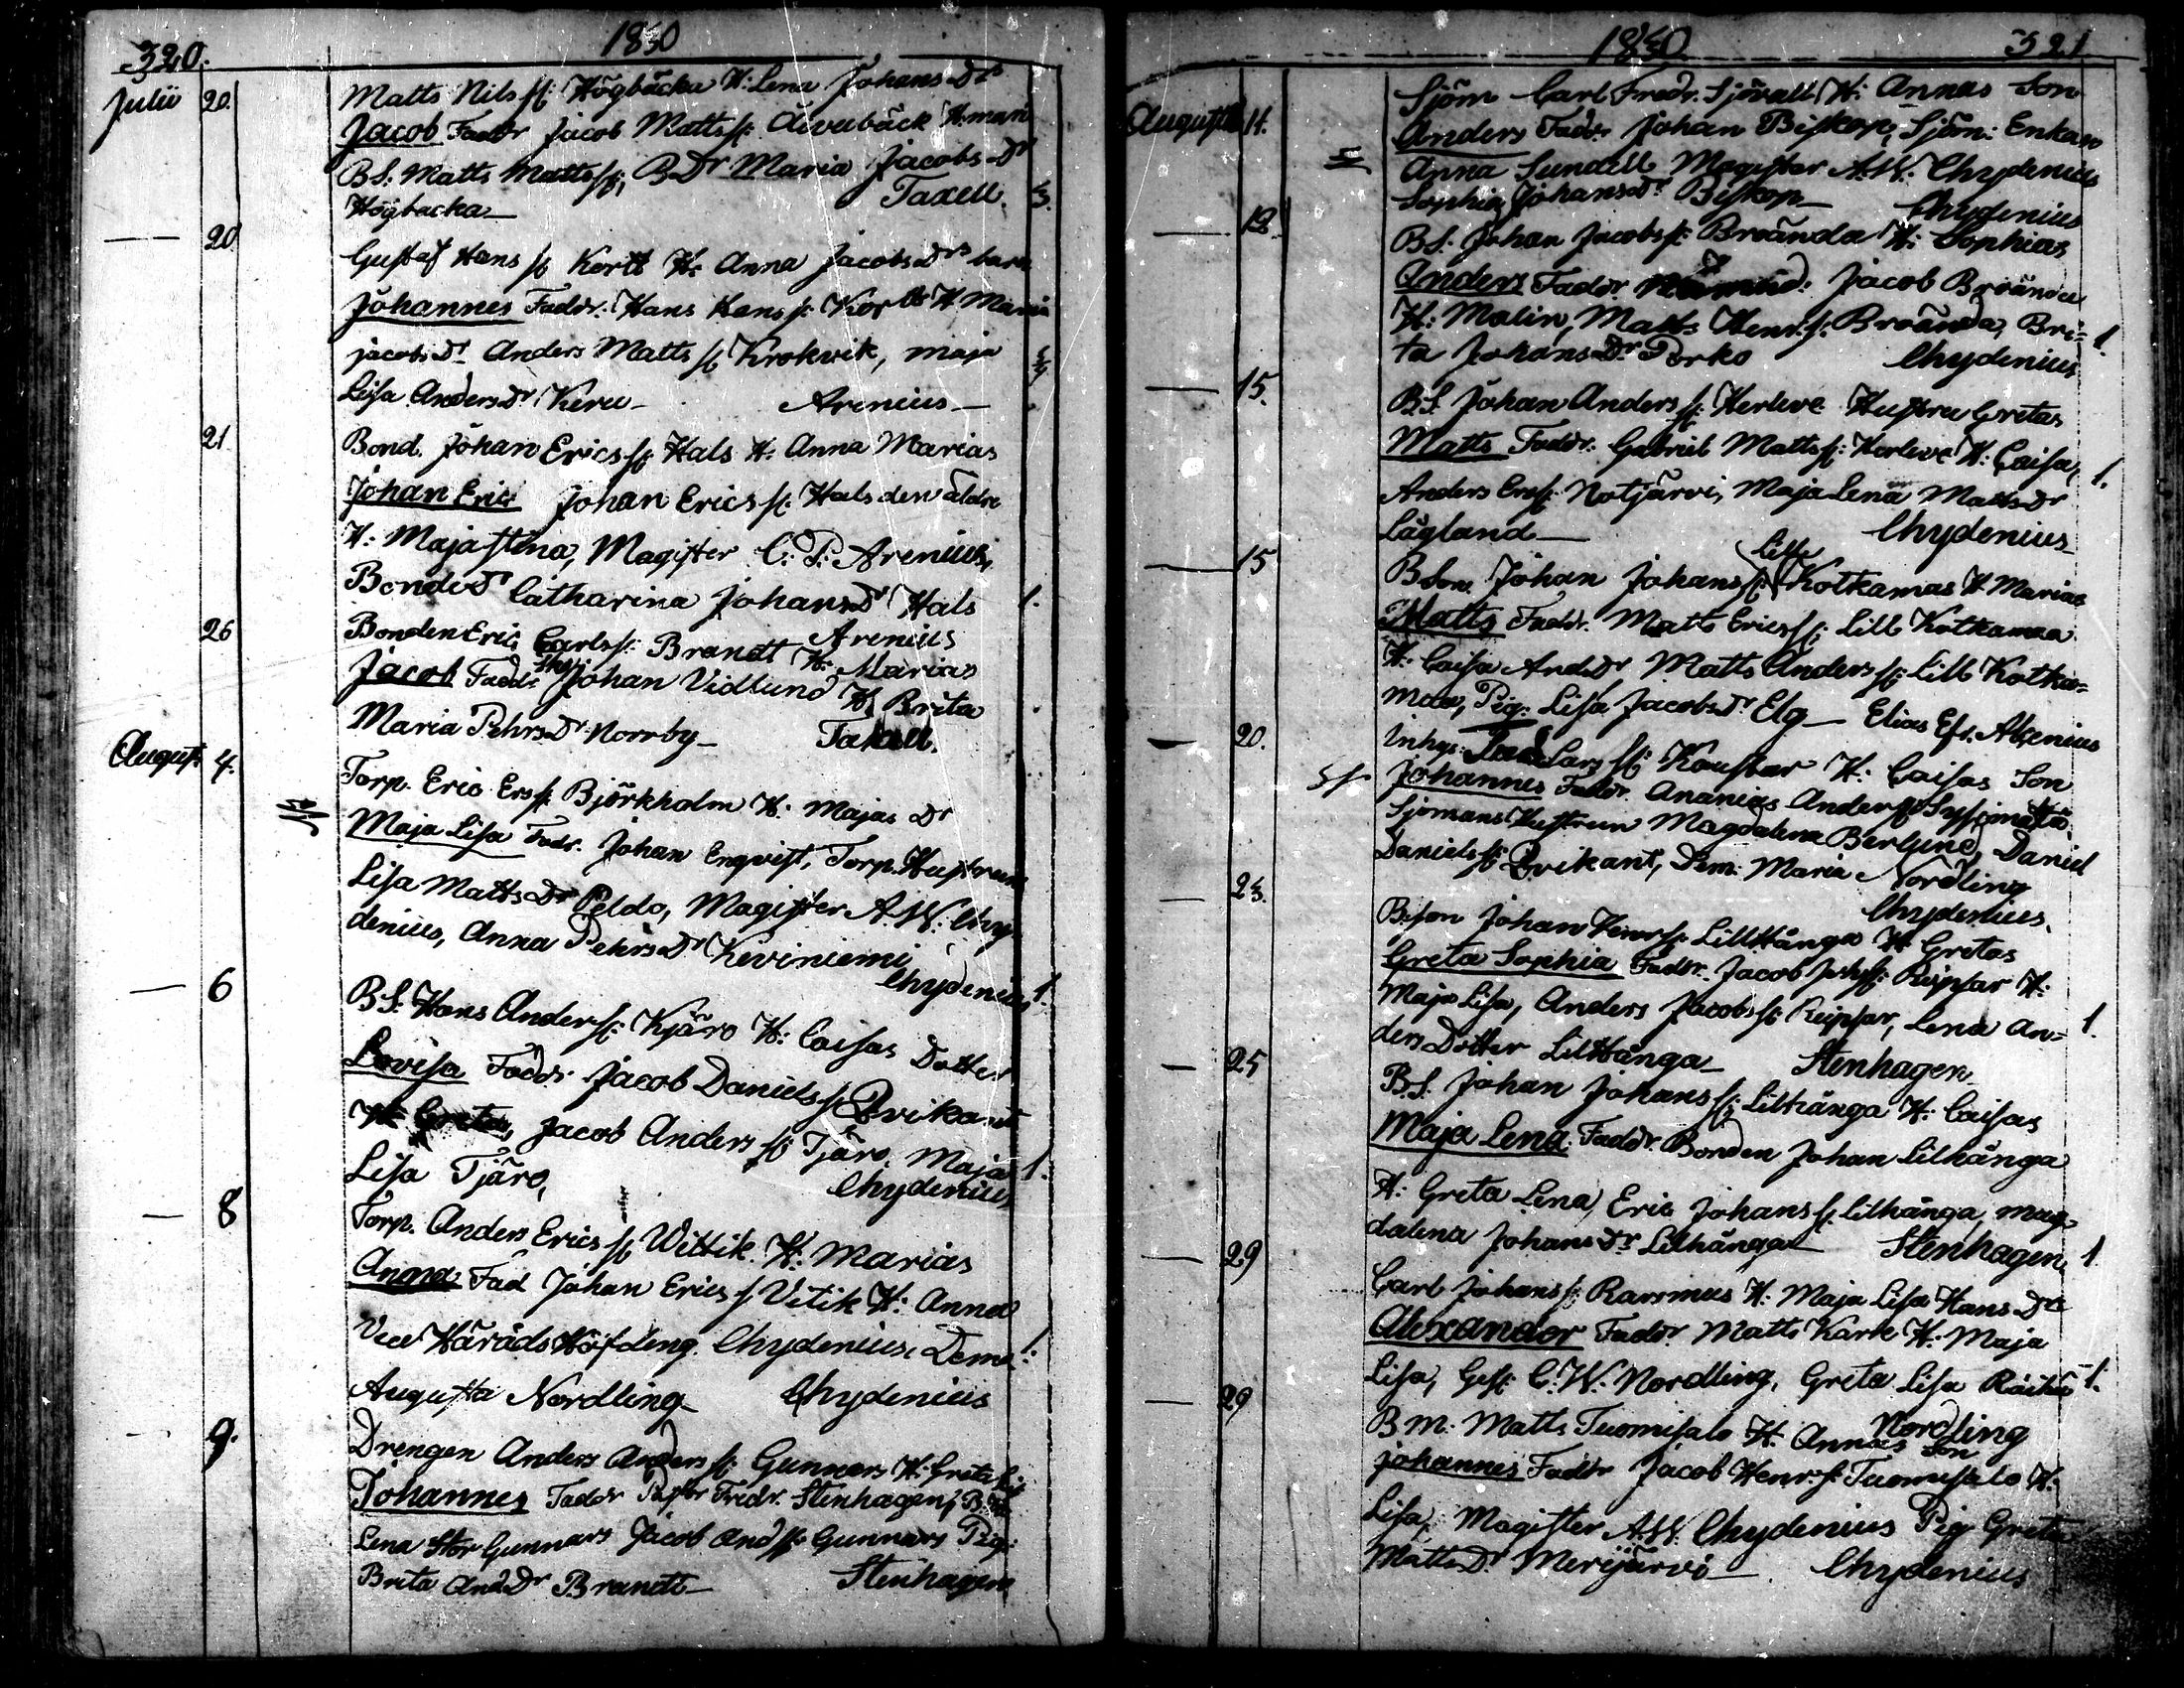 320.
1830
Julii 20. Matts Nilsss: Högbacka H: Lena Johans Drs
Jacob Faddr Jacob Mattsss: Åivubäck H: mari
BS: Matts Mattsss:, BDr Maria Jacobs Dr
Högbacka Taxell 3.
— 20 Gustaf Hansss: Kortt H: Anna JacobsDrs barn
Johannes Faddr: Hans Hansss: Kortt H. Maria
jacobsDr Anders Mattsss: Krokvik, maja
Lisa AndersDr Keru — Arenius —
21 Bond. Johan Ericsss: Hals H: Anna Marias
Johan Eric Johan Ericsss: Hals den äldre
H: Majastina, Magister C: P: Arenius,
BondeDr Catharina JohansDr Hals 1.
Arenius
26 Bonden Eric Carlsss: Brandt H: Marias
Jacob Faddr Johan Vidlund H: Brita
Maria PehrsDr Norrby — Taxell.
August 4. Torp. Eric Ersss: Björkholm H: Majas Dr
Maja Lisa Fadr. Johan Enqvist, Torp. Hustrun
Lisa MattsDr Peldo, Magister A. W. Chy-
denius, Anna PehrsDr Keviniemi
Chydenius 1.
— 6 B.S. Hans Andersss: Kjäro H: Caisas Dotter
Lovisa Faddr. Jacob Danielsss: Qvikant
H: Greta, Jacob Andersss: Tjäro, Maja 1.
Lisa Tjäro, Chydenius
— 8 Torp. Anders Ericsss: Wittik H: Marias
Anna Fad Johan Ericsss: Vitik H: Anna
Vice Härads Höfdeng. Chydenius, Dem. 1.
Augusta Nordling — Chydenius
— 9. Drengen Anders Andersss: Gunnars H: Greta
Johannes Faddr Pastor Fredr. Stenhagen, B:
Lena Stor Gunnars Jacob Andss: Gunnars Pig:
Brita AndDr Brandt — Stenhagen
1830
321
Augusti 11. Sjöm Carl Fredr. Sjövall H: Annas Son
Anders Fadr. Johan Biskop, Sjöm: Enkan
Anna Sundell Magister A. W. Chydenius
Sophia JohansDr Biskop — Chydenius
— 12. BS. Johan Jacobsss: Broända H: Sophias
Anders Faddr. Jacob Broända
H: Malin, Matts Henr.ss: Broända, Bri- 1.
ta JohansDr Porko Chydenius
— 15. BS. Johan Andersss: Herleve Hustru Gretas
Matts Faddr: Gabriel Mattsss: Herleve H: Caisa, 1.
Anders Ersss: Notjärvi, Maja Lena MattsDr
Lågland — Chydenius
— 15 BSon Johan Johansss: Lill Kotkamas H: Marias
Matts Faddr. Matts Ericsss: Lill Kotkamaa
H: Caisa AndDr, Matts Andersss: Lill Kotka-
maa, Pig: Lisa JacobsDr Elg — Elias Efr. Alcenius
— 20. Inhys: Larsss: Koustar H: Caisas Son
Johannes Faddr. Ananias Andersss: Syssimetsä
Sjömans Hustrun Magdalena Berlund, Daniel
Danielsss: Qvikant, Dem. Maria Nordling
Chydenius.
— 23. B.son Johan Henrss: Lillhånga H: Gretas
Greta Sophia Faddr. Jacob Ripsar H:
Maja Lisa, Anders Jacobsss: Ripsar, Lena An- 1.
ders Dotter Lillhånga — Stenhagen
— 25 B.S. Johan Johansss: Lillhånga H: Caisas
Maja Lena Faddr. Bonden Johan Lilhånga
H: Greta Lena, Eric Johansss: Lilhånga, Mag-
dalena JohansDr Lilhånga — Stenhagen 1
— 29 Carl Johansss: Rasmus H: Maja Lisa HansDrs
Alexander Faddr Matts Kark H: Maja
Lisa, Gess: C. W. Nordling, Greta Lisa 1.
Nordling
— 29 B m. Matts Tuomisalo H: Annas Son
Johannes Faddr Jacob Henr.ss: Tuomisalo H:
Lisa, Magister A.W. Chydenius Pig Greta
MattsDr Merijärvi — Chydenius